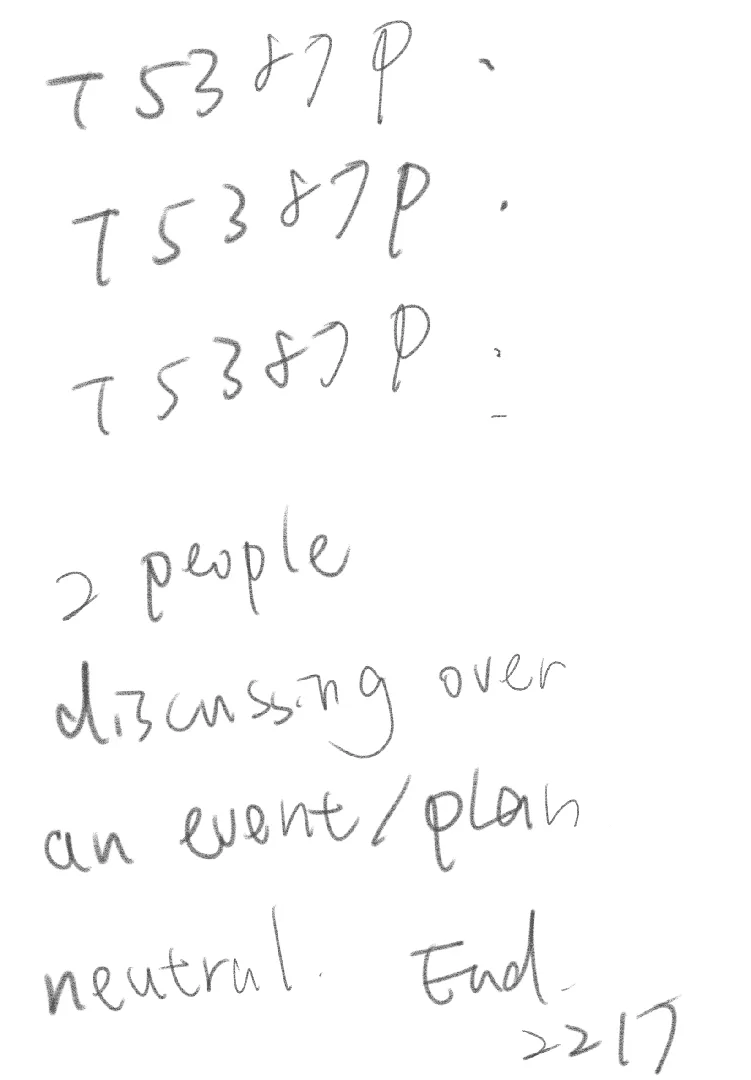 T5387P.
T5387P.
T5387P:
2 people
discussing over
an event/plan
neutral. End.
2217